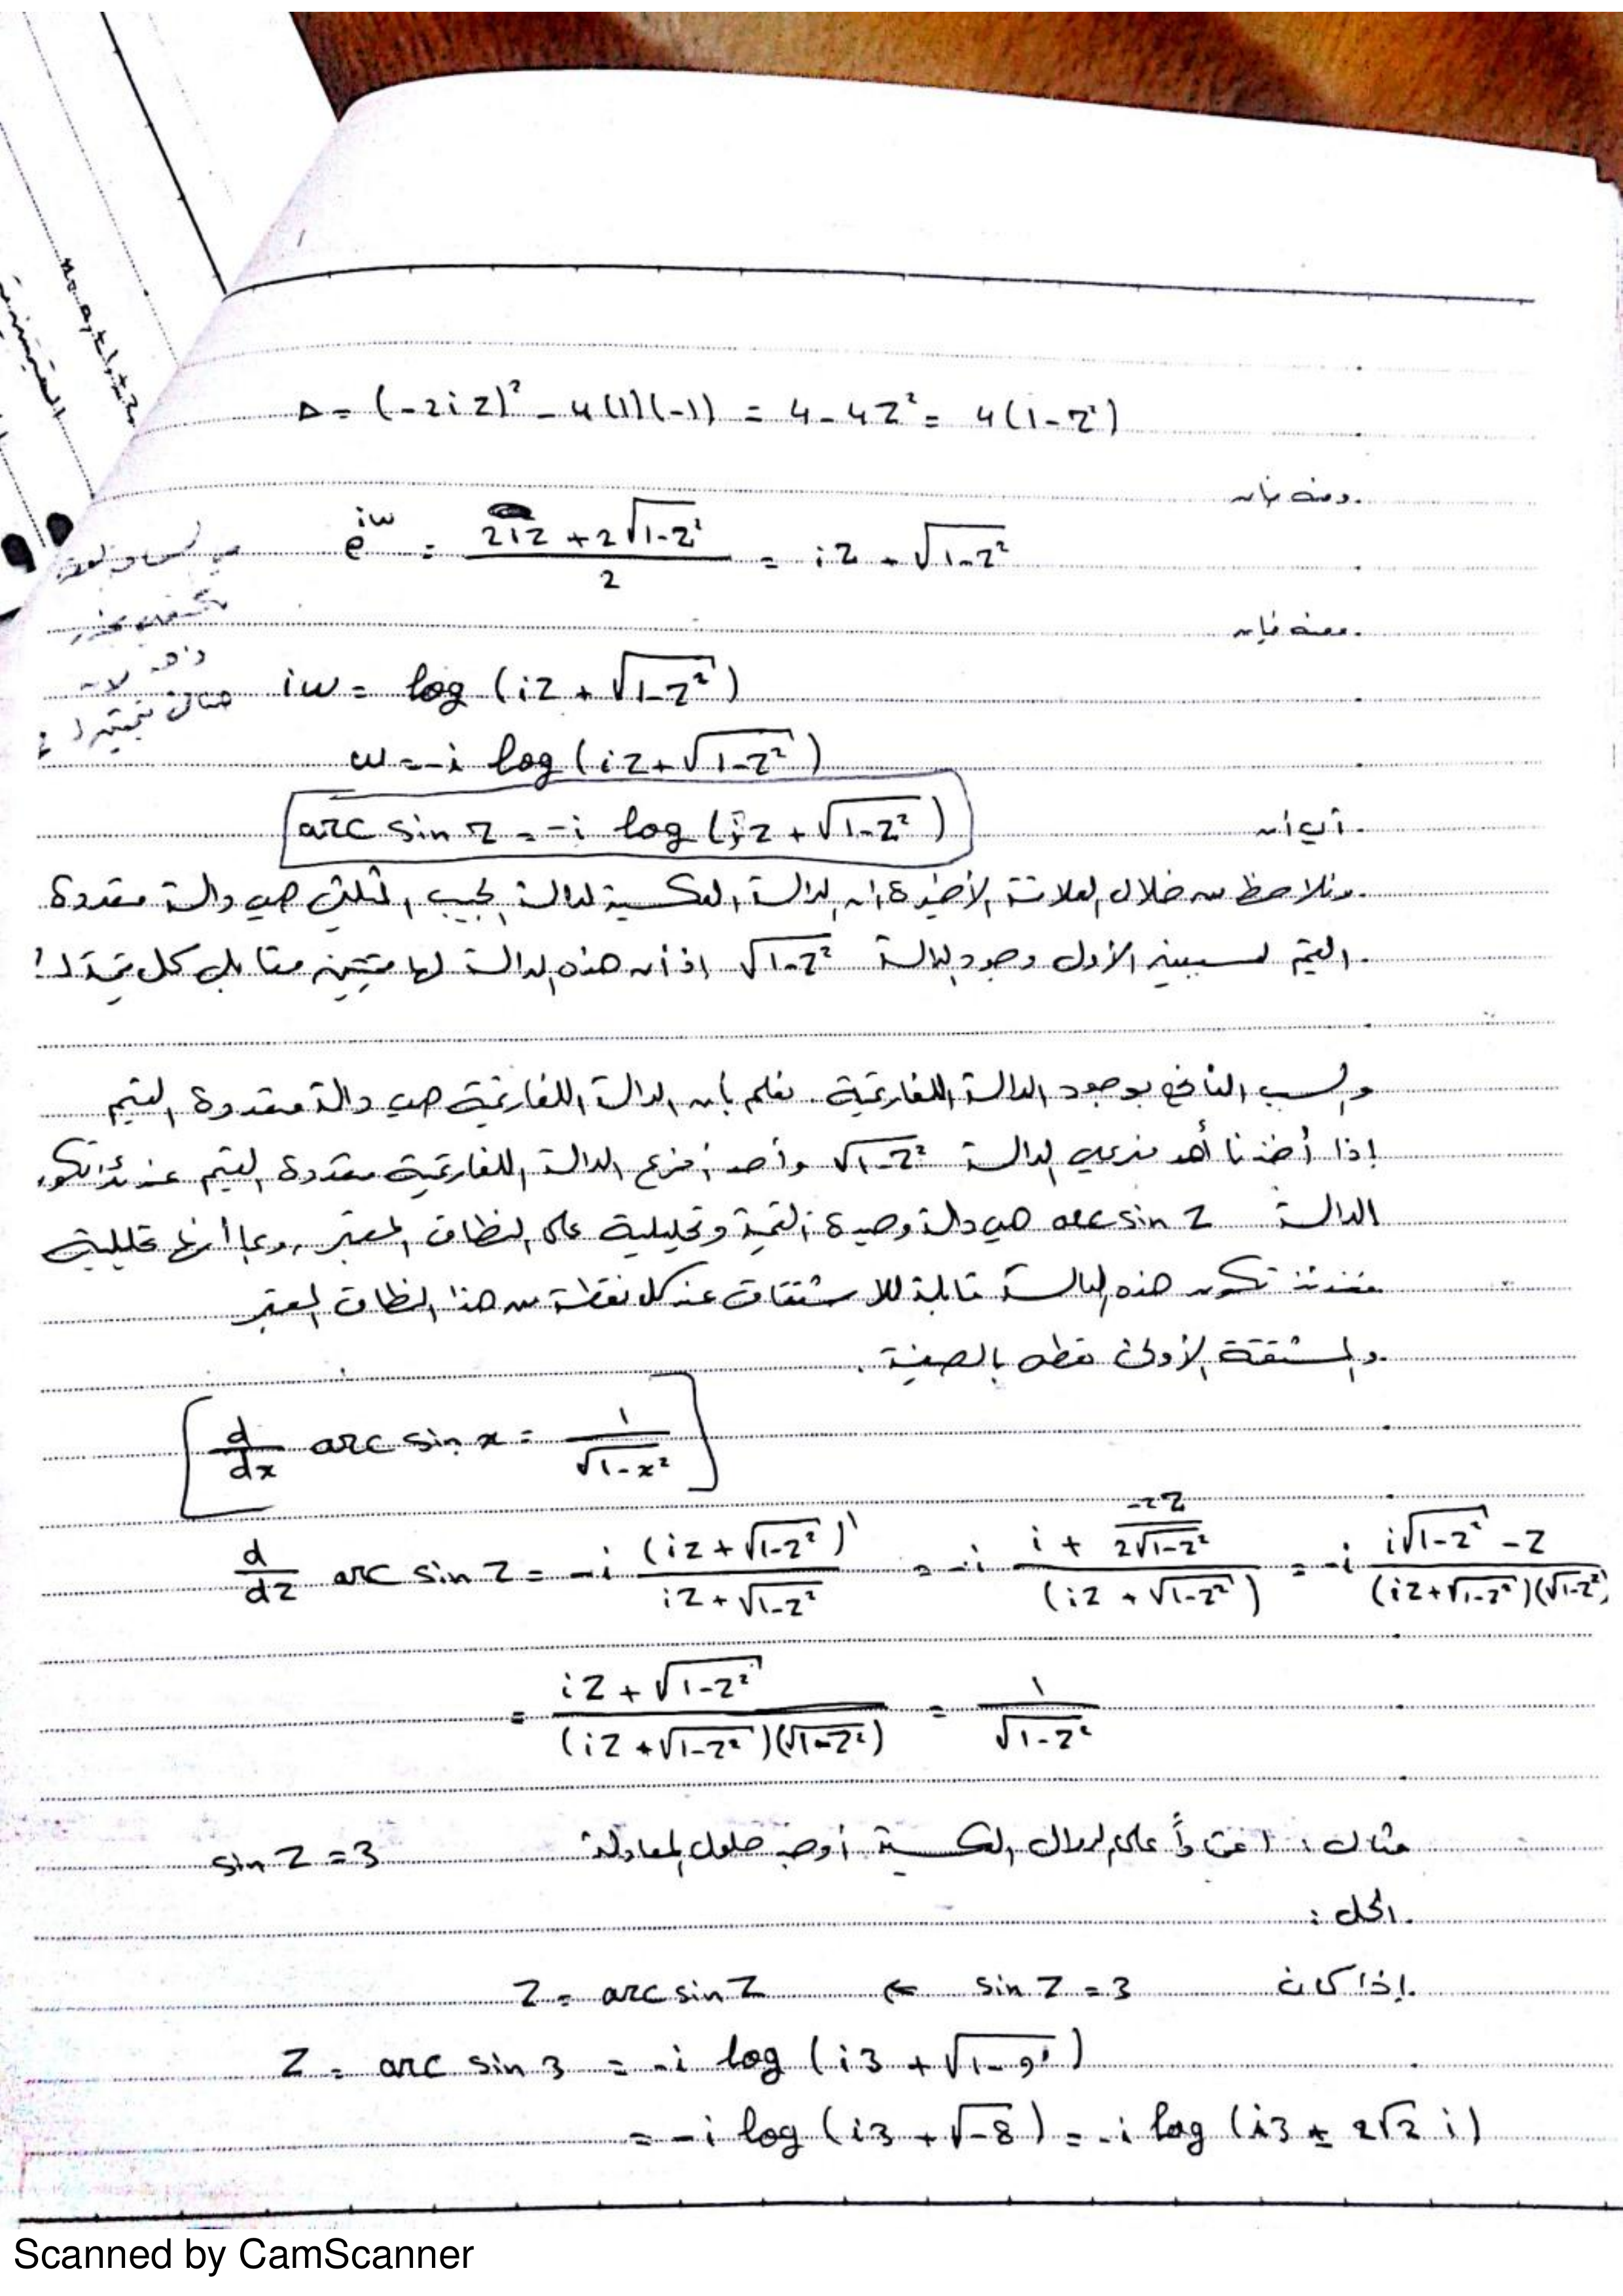 Δ = (-2iz)² - 4(1)(-1) = 4 - 4z² = 4(1-z²)
ومنه فإن
e^{iw} = \frac{2iz + 2\sqrt{1-z²}}{2} = iz + \sqrt{1-z²}
ومنه فإن
iw = log (iz + \sqrt{1-z²})
w = -i log (iz + \sqrt{1-z²})
أي أن
arc sin z = -i log (iz + \sqrt{1-z²})
ونلاحظ من خلال العلاقة الأخيرة أن الدالة العكسية لدالة الجيب المثلثي هي دالة متعددة
القيم لسببين الأول وجود الدالة \sqrt{1-z²} إذ أن هذه الدالة لها قيمتين مقابل كل قيمة لـ z
والسبب الثاني بوجود الدالة اللغارتمية. نعلم بأن الدالة اللغارتمية هي دالة متعددة القيم
إذا أخذنا أحد فرعي الدالة \sqrt{1-z²} وأحد أفرع الدالة اللغارتمية متعددة القيم عندئذ تكون
الدالة arc sin z هي دالة وحيدة القيمة وتحليلية على النطاق المعتبر، وبما أنها تحليلية
فعندئذ تكون هذه الدالة قابلة للاشتقاق عند كل نقطة من هذا النطاق المعتبر
والمشتقة الأولى تعطى بالصيغة.
[ \frac{d}{dx} arc sin x = \frac{1}{\sqrt{1-x²}} ]
\frac{d}{dz} arc sin z = -i \frac{(iz + \sqrt{1-z²})'}{iz + \sqrt{1-z²}} = -i \frac{i + \frac{-2z}{2\sqrt{1-z²}}}{(iz + \sqrt{1-z²})} = -i \frac{i\sqrt{1-z²} - z}{(iz + \sqrt{1-z²})(\sqrt{1-z²})}
= \frac{iz + \sqrt{1-z²}}{(iz + \sqrt{1-z²})(\sqrt{1-z²})} = \frac{1}{\sqrt{1-z²}}
مثال: اعتماداً على الدوال العكسية أوجد حلول المعادلة sin z = 3
الحل:
إذا كان sin z = 3 ← z = arc sin z
z = arc sin 3 = -i log (i3 + \sqrt{1-9})
= -i log (i3 + \sqrt{-8}) = -i log (i3 ± 2\sqrt{2} i)
Scanned by CamScanner